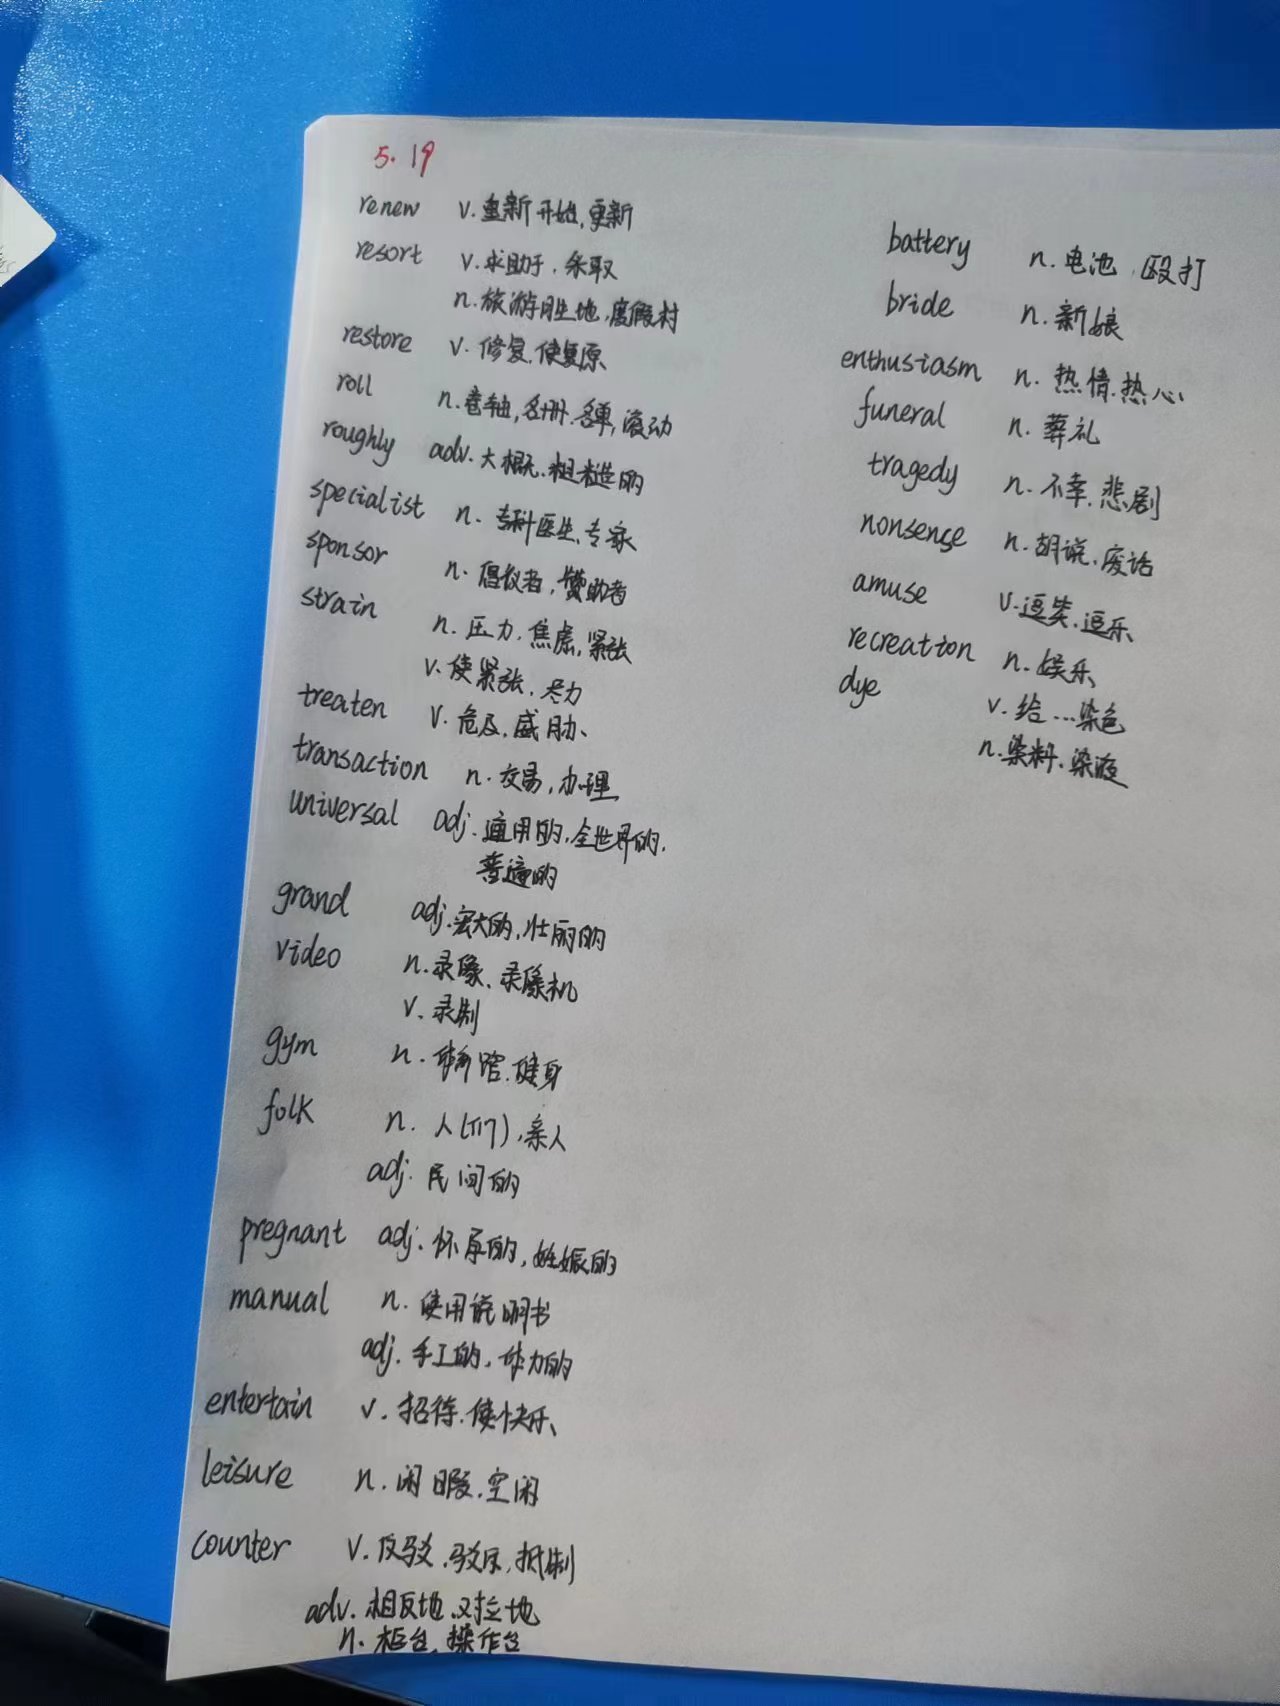 5.19
renew v.重新开始,更新
resort v.求助于.采取
n.旅游胜地,度假村
restore v.修复.使复原
roll n.卷轴,名册.名单,滚动
roughly adv.大概.粗糙的
specialist n.专科医生,专家
sponsor n.倡议者,赞助者
strain n.压力.焦虑,紧张
v.使紧张.尽力
treaten v.危及,威胁、
transaction n.交易,办理
universal adj.通用的,全世界的,
普遍的
grand adj.宏大的,壮丽的
video n.录像.录像机
v.录制
gym n.体育馆.健身
folk n.人(们),亲人
adj.民间的
pregnant adj.怀孕的,妊娠的
manual n.使用说明书
adj.手工的,体力的
entertain v.招待.使快乐、
leisure n.闲暇.空闲
counter v.反驳.驳斥,抵制
adv.相反地.对立地
n.柜台.操作台
battery n.电池,殴打
bride n.新娘
enthusiasm n.热情.热心
funeral n.葬礼
tragedy n.不幸.悲剧
nonsense n.胡说.废话
amuse v.逗笑.逗乐
recreation n.娱乐
dye v.给...染色
n.染料.染液